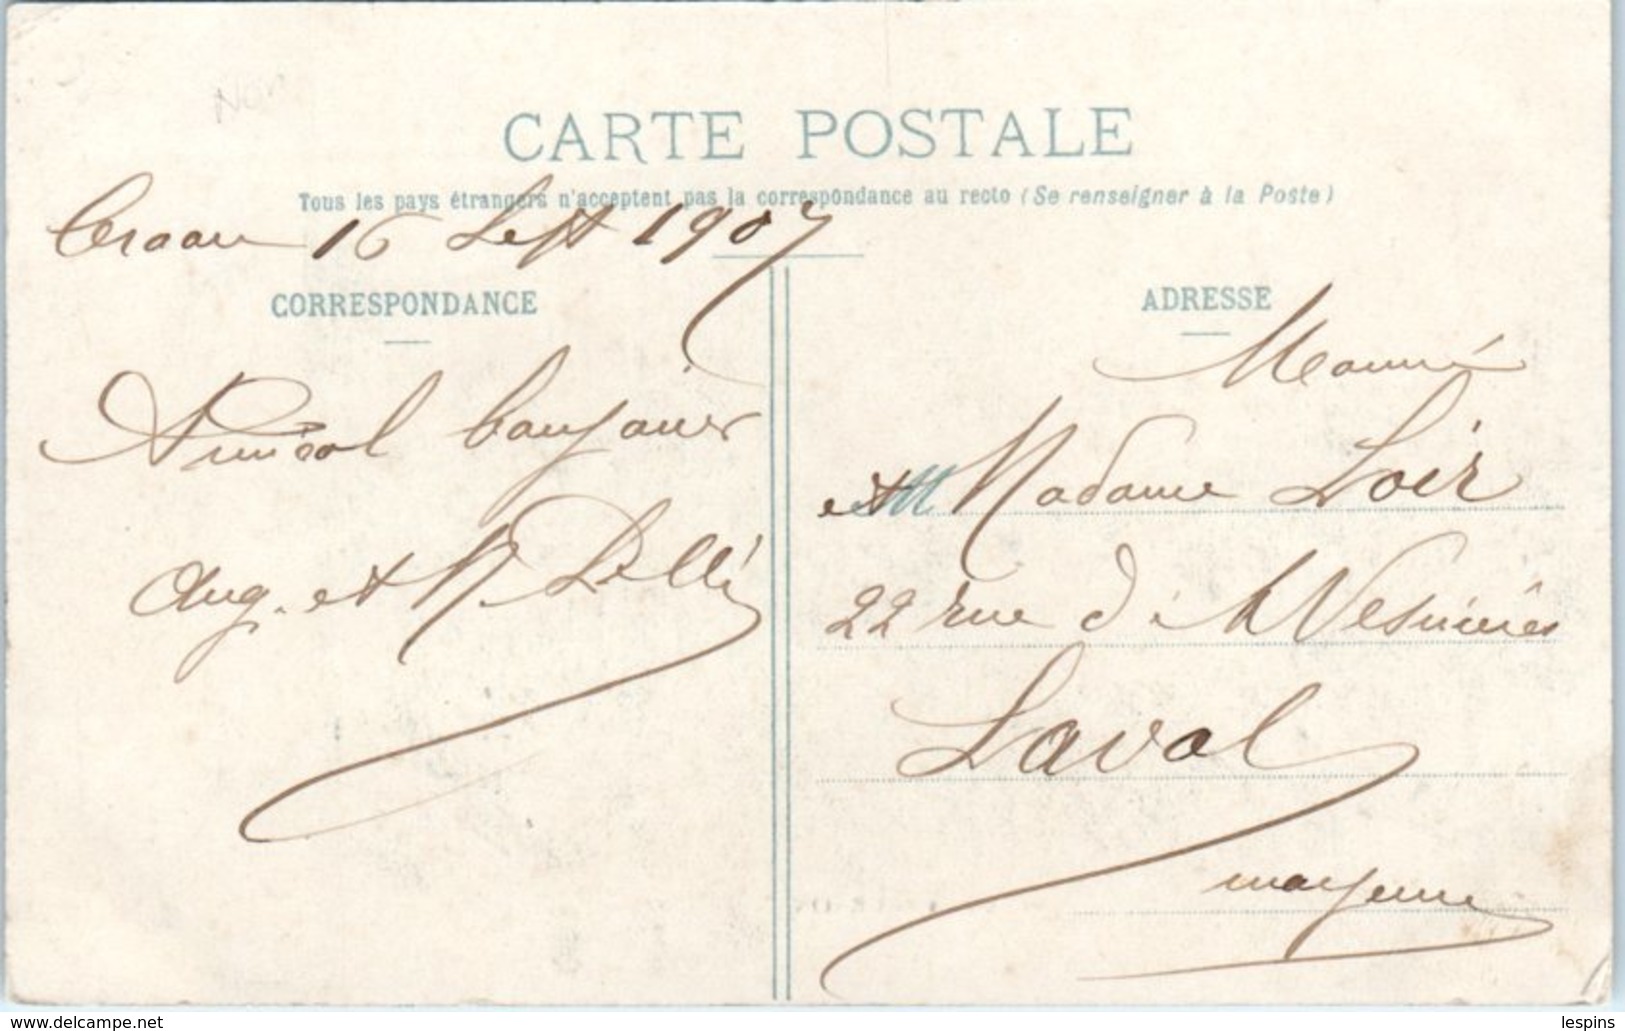 CARTE POSTALE
Tous les pays étrangers n'acceptent pas la correspondance au recto (Se renseigner à la Poste)
Craon 16 Sept 1907
CORRESPONDANCE
Amical bonjour
Aug. et
ADRESSE
et Madame Loir
22 rue
Laval
mayenne
www.delcampe.net
lespins